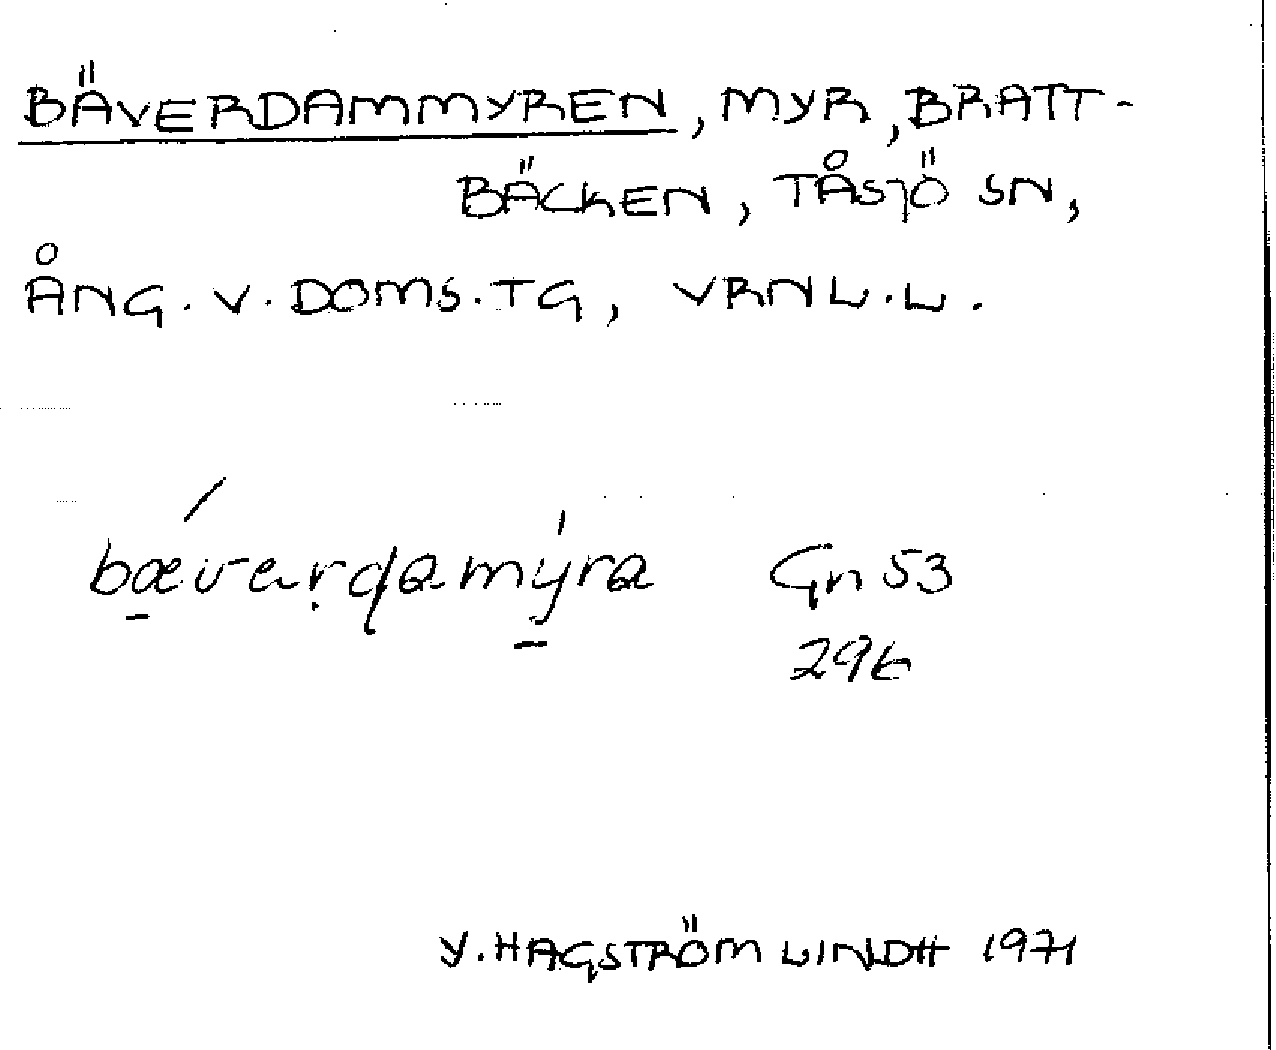 BÄVERDAMMYREN, MYR, BRATT-
BÄCKEN, TÅSJÖ SN,
ÅNG. V. DOMS. TG, VRNL. L.
bæverdamýra Gn 53
296
Y. HAGSTRÖM LINDH 1971